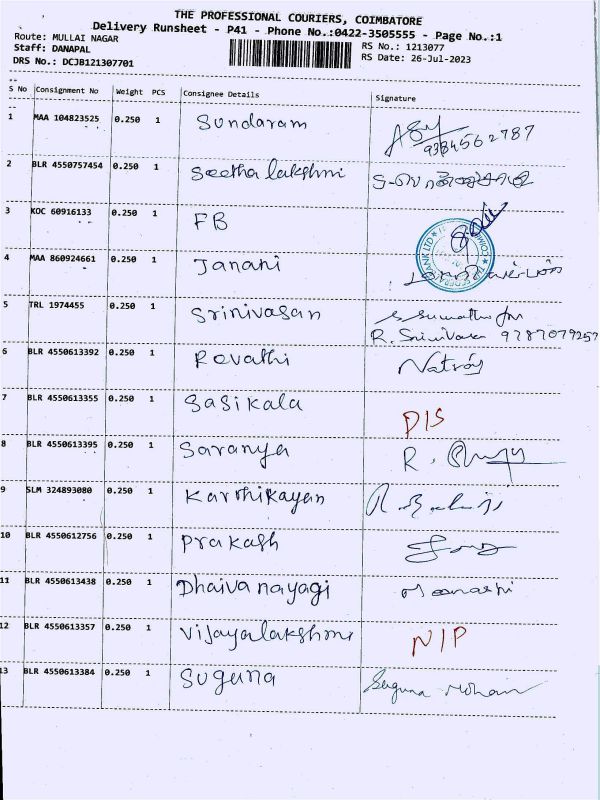 THE PROFESSIONAL COURIERS, COIMBATORE
Delivery Runsheet - P41 - Phone No.:0422-3505555 - Page No.:1
Route: MULLAI NAGAR
RS No.: 1213077
Staff: DANAPAL
RS Date: 26-Jul-2023
DRS No.: DCJB121307701
S No Consignment No Weight PCS Consignee Details Signature
1 MAA 104823525 0.250 1 Sundaram
9384562787
2 BLR 4550757454 0.250 1 Seetha lakshmi
3 KOC 60916133 0.250 1 FB
4 MAA 860924661 0.250 1 Janani
5 TRL 1974455 0.250 1 Srinivasan S Sumathi for
R. Srinivasan 9787079257
6 BLR 4550613392 0.250 1 Revathi Natroy
7 BLR 4550613355 0.250 1 Sasikala D/S
8 BLR 4550613395 0.250 1 Saranya R.
9 SLM 324893080 0.250 1 Karthikayan
10 BLR 4550612756 0.250 1 Prakash
11 BLR 4550613438 0.250 1 Dhaivanayagi
12 BLR 4550613357 0.250 1 Vijayalakshmi N/P
13 BLR 4550613384 0.250 1 Suguna Suguna Mohan